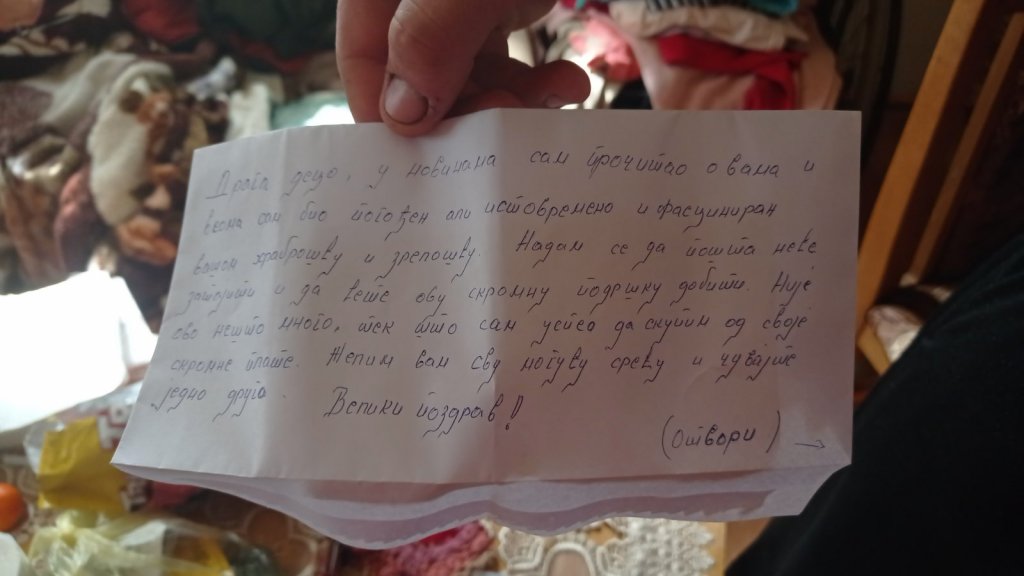 Драга децо, у новинама сам прочитао о вама и
веома сам био погођен али истовремено и фасциниран
вашом храброшћу и зрелошћу. Надам се да пошта неће
затајити и да ћете ову скромну подршку добити. Није
ово нешто много, тек што сам успео да скупим од своје
скромне плате. Желим вам сву могућу срећу и чувајте
једно друго. Велики поздрав!
(Отвори) →